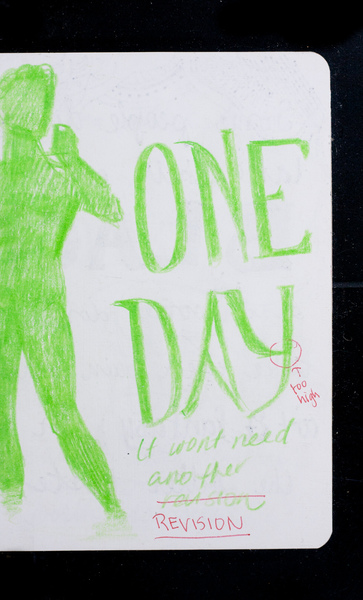 ONE
DAY
too
high
it wont need
another
revision
REVISION